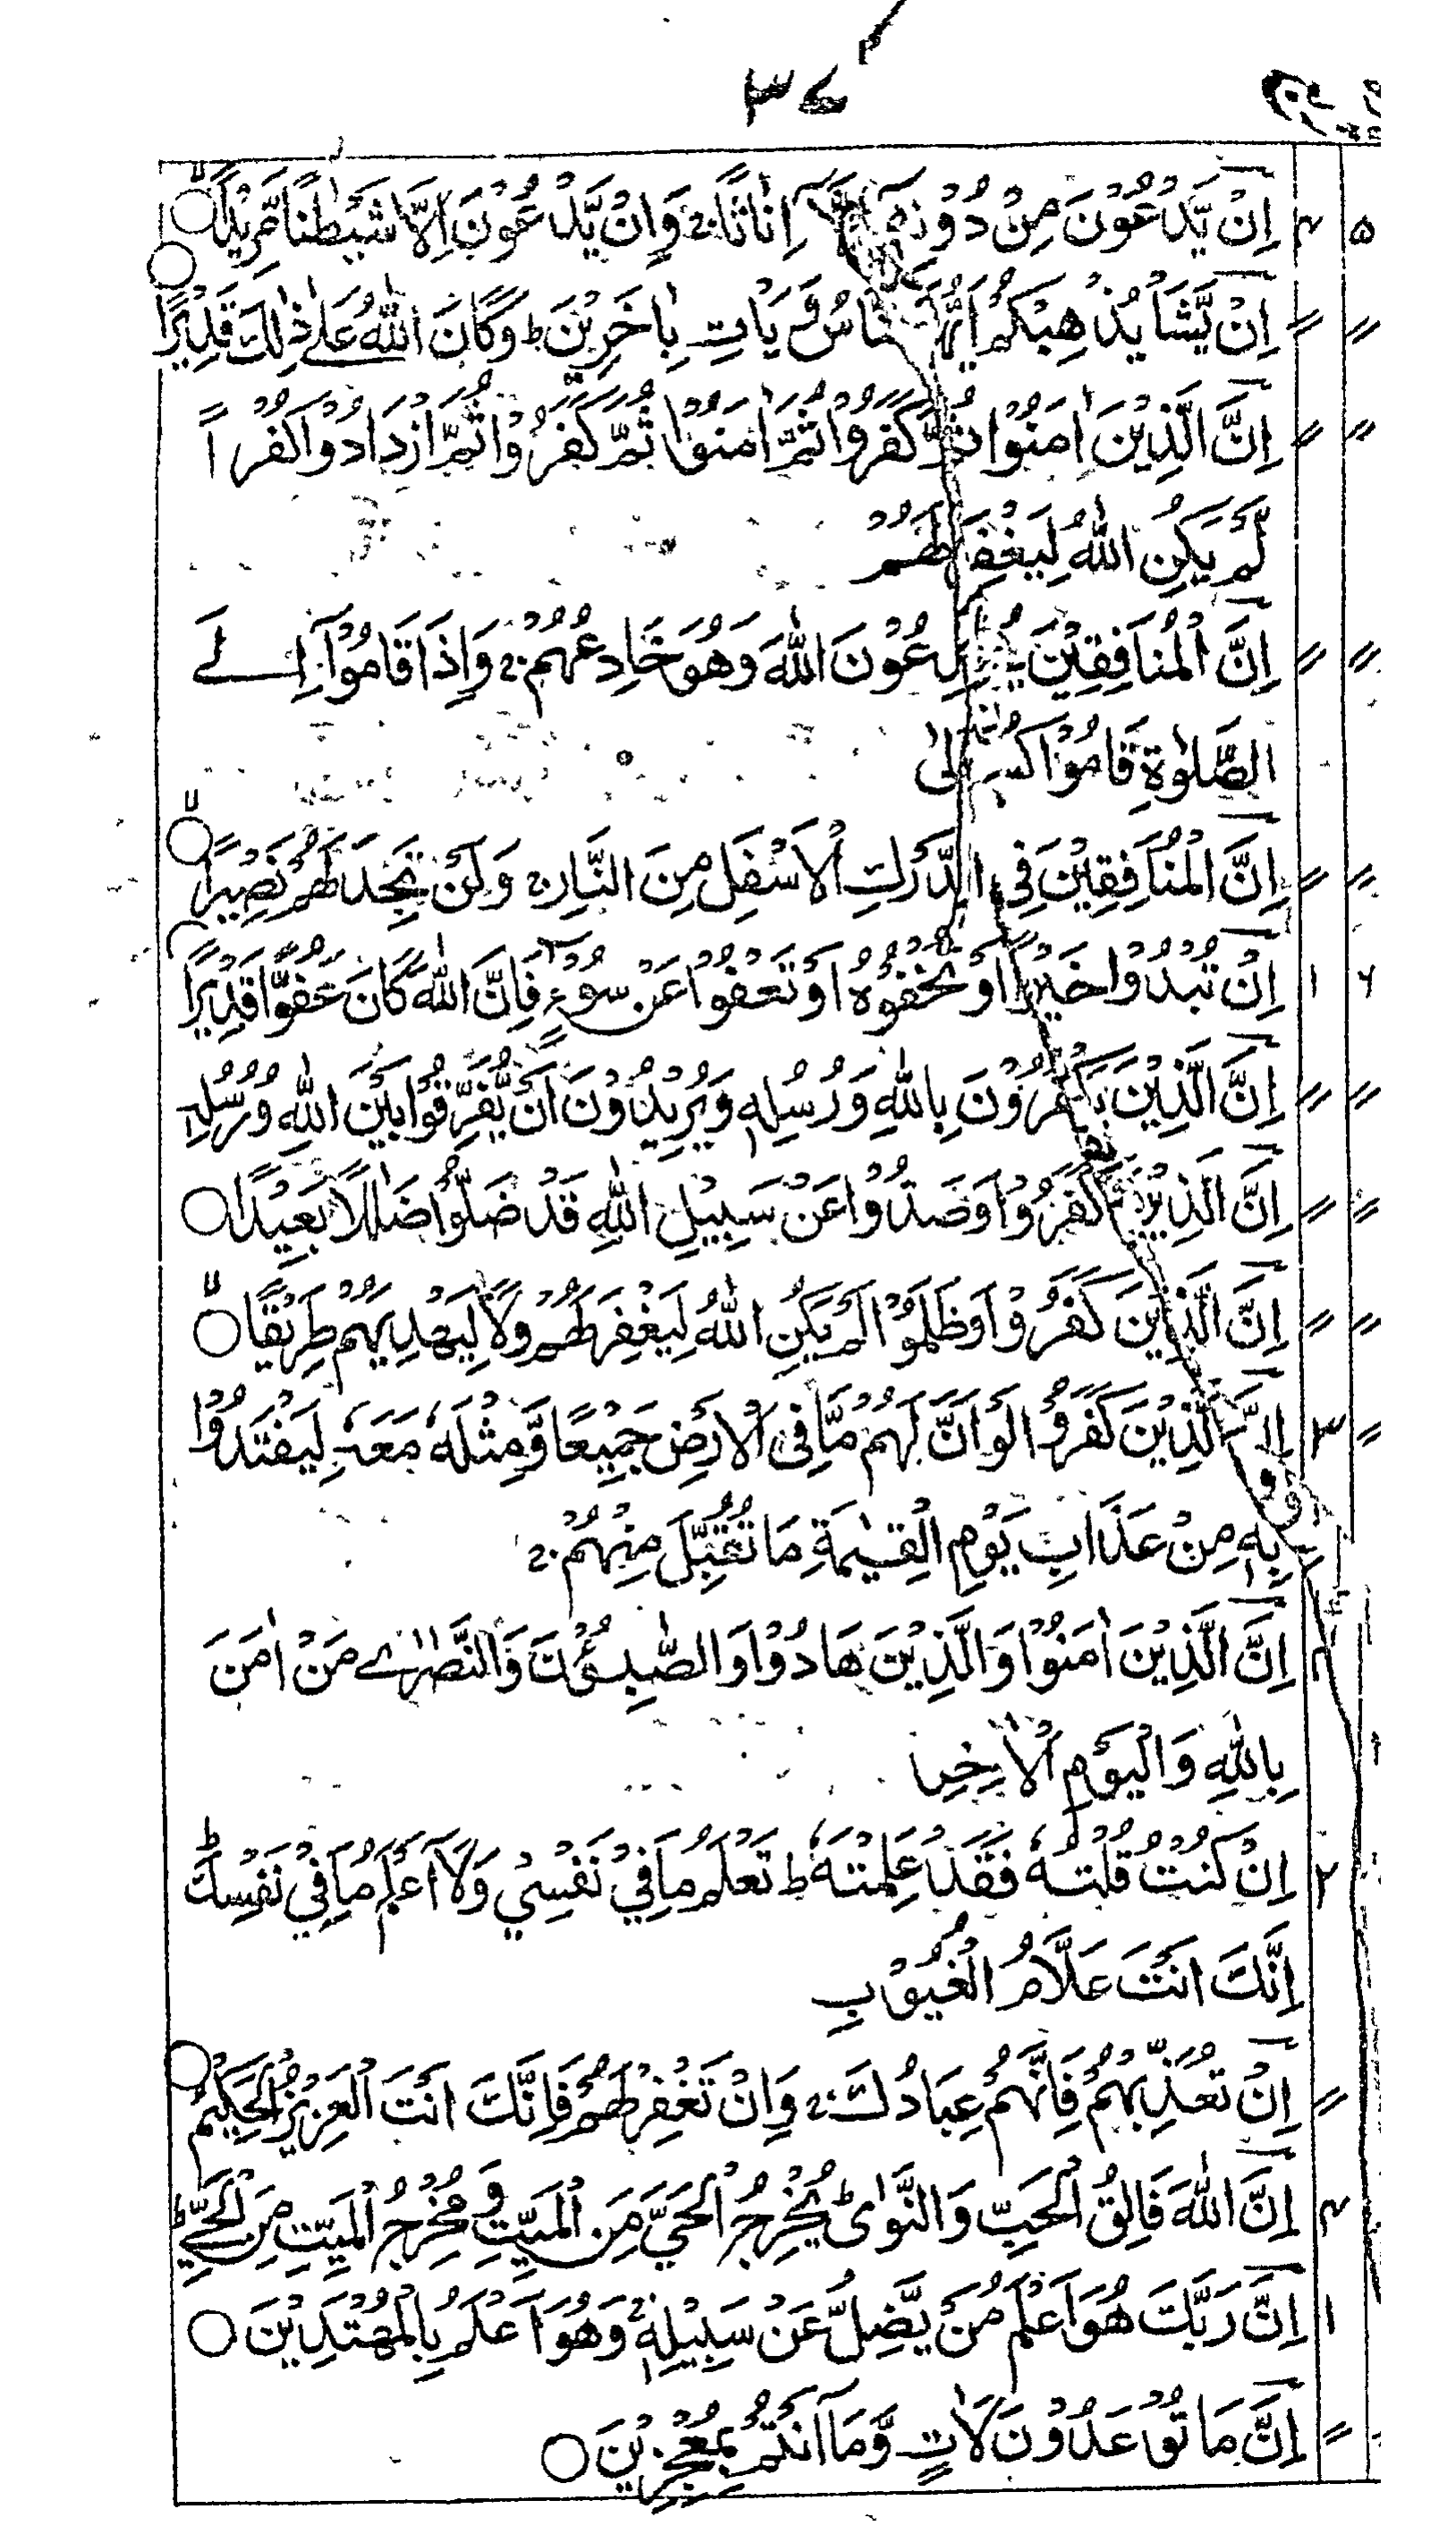 ٣٧
٥ ٣ اِنْ يَّدْعُوْنَ مِنْ دُوْنِهٖٓ اِلَّآ اِنٰثًا ۚ وَاِنْ يَّدْعُوْنَ اِلَّا شَيْطٰنًا مَّرِيْدًا ۙ
〃 〃 اِنْ يَّشَاْ يُذْهِبْكُمْ اَيُّهَا النَّاسُ وَ يَاْتِ بِاٰخَرِيْنَ ؕ وَكَانَ اللّٰهُ عَلٰے ذٰلِكَ قَدِيْرًا
〃 〃 اِنَّ الَّذِيْنَ اٰمَنُوْا ثُمَّ كَفَرُوْا ثُمَّ اٰمَنُوْا ثُمَّ كَفَرُوْا ثُمَّ ازْدَادُوْا كُفْرًا
لَّمْ يَكُنِ اللّٰهُ لِيَغْفِرَ لَهُمْ
〃 〃 اِنَّ الْمُنَافِقِيْنَ يُخٰدِعُوْنَ اللّٰهَ وَهُوَ خَادِعُهُمْ ۚ وَاِذَا قَامُوْآ اِلَے
الصَّلٰوةِ قَامُوْا كُسَالٰى
〃 〃 اِنَّ الْمُنَافِقِيْنَ فِى الدَّرْكِ الْاَسْفَلِ مِنَ النَّارِ ۚ وَلَنْ تَجِدَ لَهُمْ نَصِيْرًا ۙ
٦ ١ اِنْ تُبْدُوْا خَيْرًا اَوْ تُخْفُوْهُ اَوْ تَعْفُوْا عَنْ سُوْٓءٍ فَاِنَّ اللّٰهَ كَانَ عَفُوًّا قَدِيْرًا
〃 〃 اِنَّ الَّذِيْنَ يَكْفُرُوْنَ بِاللّٰهِ وَرُسُلِهٖ وَيُرِيْدُوْنَ اَنْ يُّفَرِّقُوْا بَيْنَ اللّٰهِ وَرُسُلِهٖ
〃 〃 اِنَّ الَّذِيْنَ كَفَرُوْا وَصَدُّوْا عَنْ سَبِيْلِ اللّٰهِ قَدْ ضَلُّوْا ضَلٰلًا بَعِيْدًا
〃 〃 اِنَّ الَّذِيْنَ كَفَرُوْا وَظَلَمُوْا لَمْ يَكُنِ اللّٰهُ لِيَغْفِرَ لَهُمْ وَلَا لِيَهْدِيَهُمْ طَرِيْقًا ۙ
〃 ٣ اِنَّ الَّذِيْنَ كَفَرُوْا لَوْ اَنَّ لَهُمْ مَّا فِى الْاَرْضِ جَمِيْعًا وَّمِثْلَهٗ مَعَهٗ لِيَفْتَدُوْا
بِهٖ مِنْ عَذَابِ يَوْمِ الْقِيٰمَةِ مَا تُقُبِّلَ مِنْهُمْ ۚ
اِنَّ الَّذِيْنَ اٰمَنُوْا وَالَّذِيْنَ هَادُوْا وَالصّٰبِـُٔوْنَ وَالنَّصٰرٰے مَنْ اٰمَنَ
بِاللّٰهِ وَالْيَوْمِ الْاٰخِرِ
٢ اِنْ كُنْتُ قُلْتُهٗ فَقَدْ عَلِمْتَهٗ ؕ تَعْلَمُ مَا فِيْ نَفْسِيْ وَلَآ اَعْلَمُ مَا فِيْ نَفْسِكَ ؕ
اِنَّكَ اَنْتَ عَلَّامُ الْغُيُوْبِ
〃 اِنْ تُعَذِّبْهُمْ فَاِنَّهُمْ عِبَادُكَ ۚ وَاِنْ تَغْفِرْ لَهُمْ فَاِنَّكَ اَنْتَ الْعَزِيْزُ الْحَكِيْمُ
٣ اِنَّ اللّٰهَ فَالِقُ الْحَبِّ وَالنَّوٰى ؕ يُخْرِجُ الْحَيَّ مِنَ الْمَيِّتِ وَ مُخْرِجُ الْمَيِّتِ مِنَ الْحَيِّ ؕ
١ اِنَّ رَبَّكَ هُوَ اَعْلَمُ مَنْ يَّضِلُّ عَنْ سَبِيْلِهٖ ۚ وَهُوَ اَعْلَمُ بِالْمُهْتَدِيْنَ
〃 اِنَّ مَا تُوْعَدُوْنَ لَاٰتٍ وَّمَآ اَنْتُمْ بِمُعْجِزِيْنَ